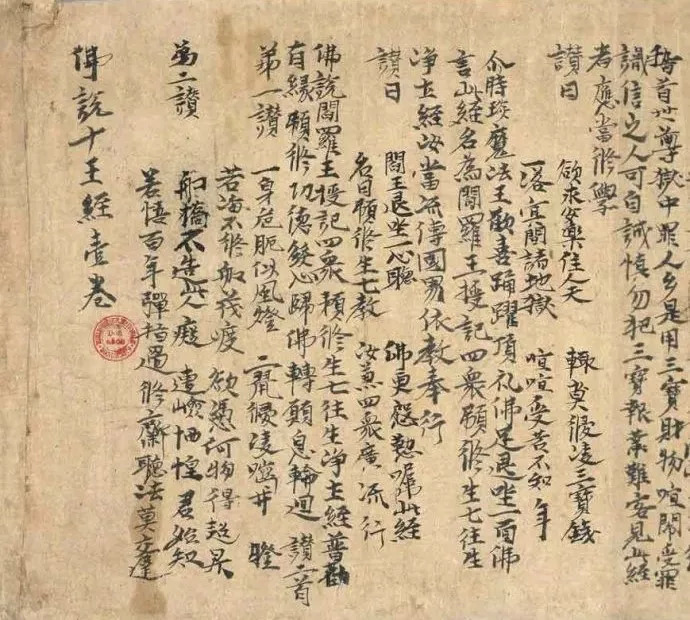 稽首世尊獄中罪人多是用三寶財物喧鬧受罪
識信之人可自誡慎勿犯三寶報業難容見此經
者應當修學
讚曰
欲求安樂住人天 輙莫侵凌三寶錢
一落冥間諸地獄 喧喧受苦不知年
尒時琰魔法王歡喜踊躍頂礼佛足退坐一面佛
言此經名為閻羅王授記四衆預修生七往生
净土經汝當流傳國界依教奉行
讚曰
閻王退坐一心聽 佛更慇懃囑此經
名曰預修生七教 汝兼四衆廣流行
佛說閻羅王授記四衆預修生七往生净土經普勸
有緣預修功德發心歸佛願息輪迴 讚二首
第一讚
一身危脆似風燈 二鼠侵凌齧井藤
苦海不修船栰渡 欲憑何物得超昇
第二讚
船橋不造此人癡 遭險恓惶君始知
若悟百年彈指過 修齋聽法莫交遲
佛說十王經壹卷